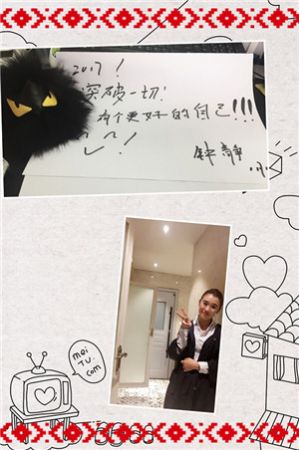 2017!
突破一切!
有个更好的自己!!!
钟静
mei
TU.
com